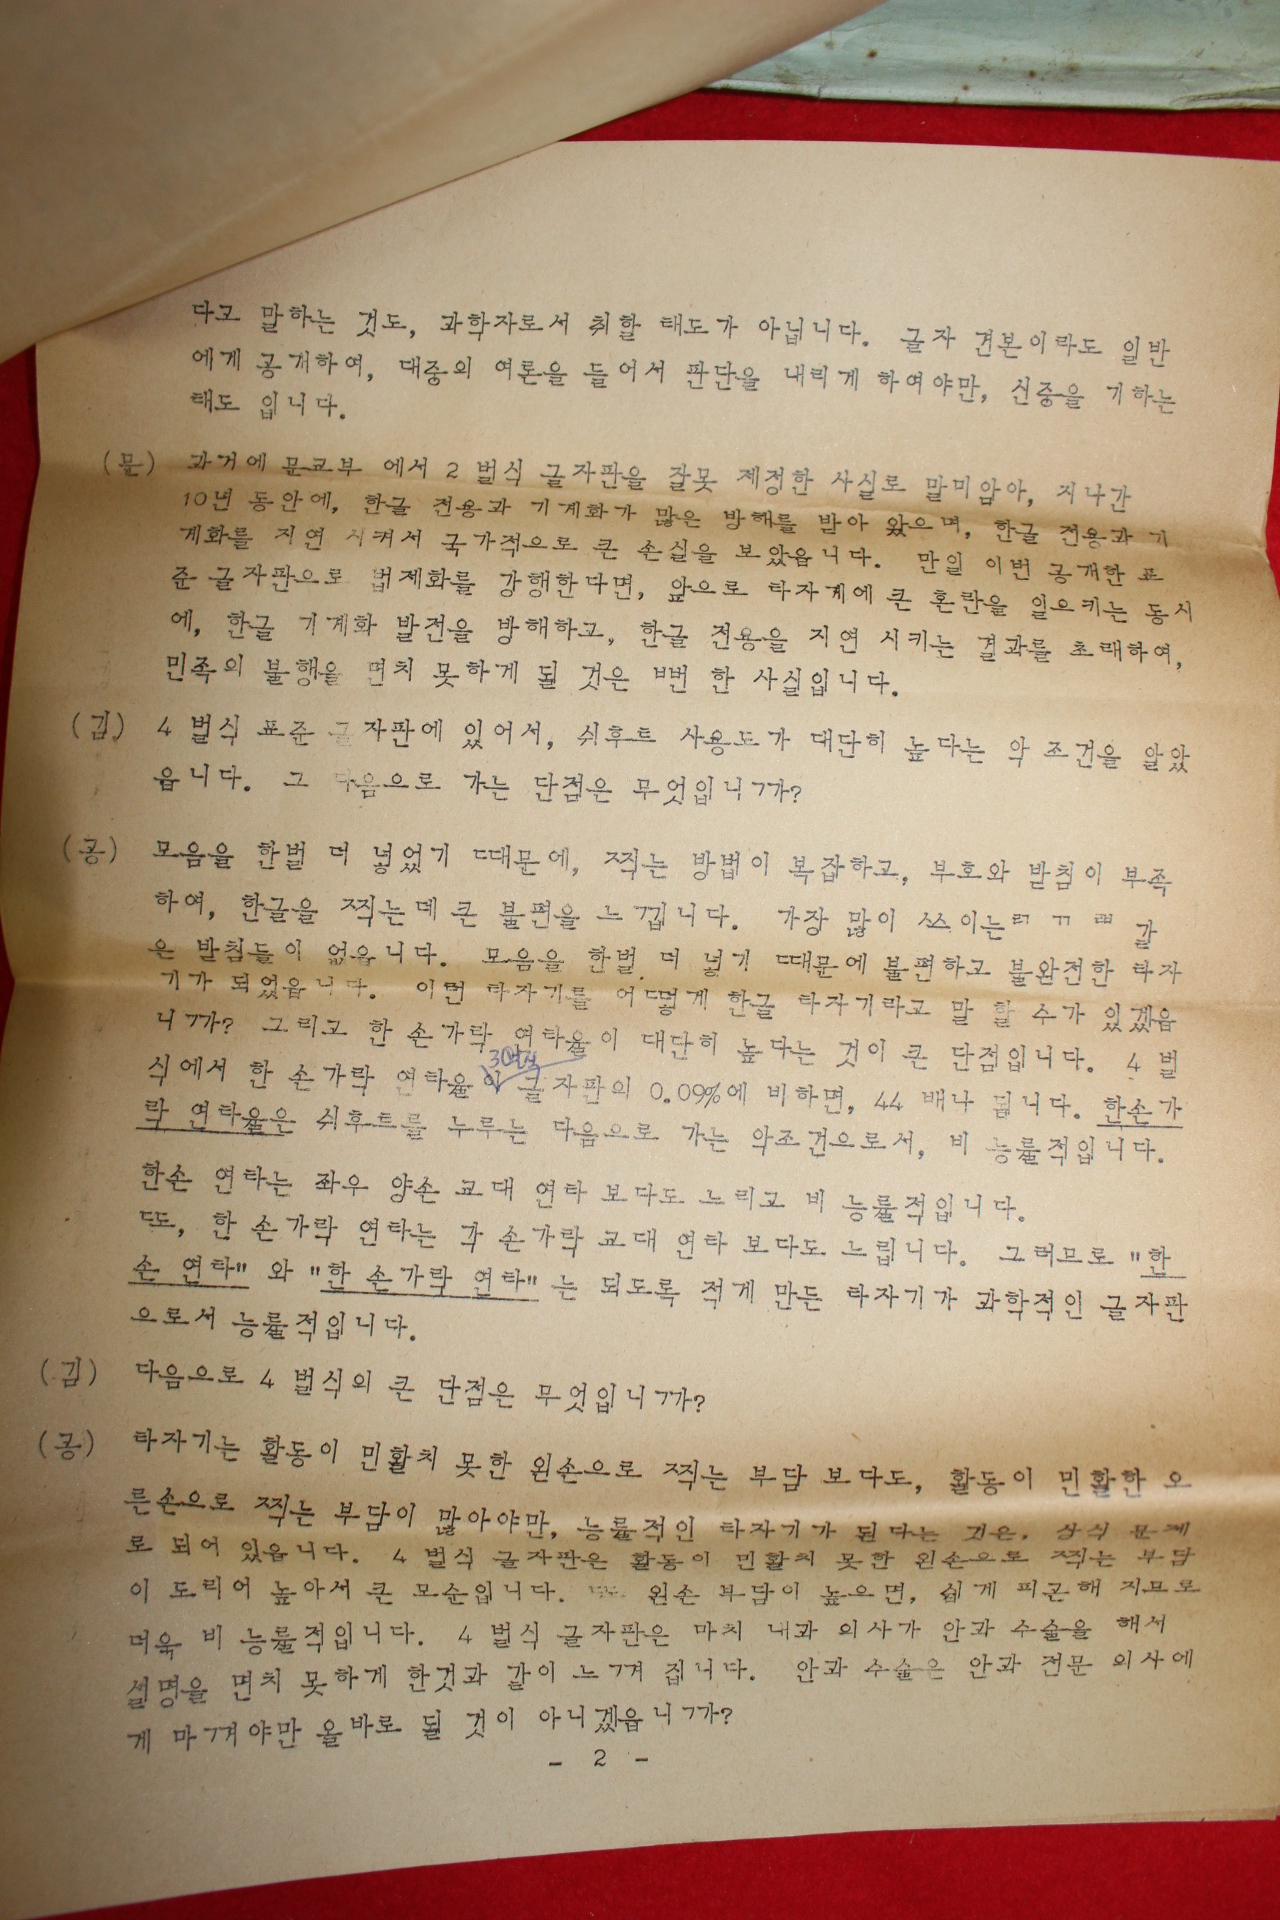 다고 말하는 것도, 과학자로서 취할 태도가 아닙니다. 글자 견본이라도 일반
에게 공개하여, 대중의 여론을 들어서 판단을 내리게 하여야만, 신중을 기하는
태도 입니다.
(문) 과거에 문교부 에서 2 벌식 글자판을 잘못 제정한 사실로 말미암아, 지나간
10년 동안에, 한글 전용과 기계화가 많은 방해를 받아 왔으며, 한글 전용과 기
계화를 지연 시켜서 국가적으로 큰 손실을 보았읍니다. 만일 이번 공개한 표
준 글자판으로 법제화를 강행한다면, 앞으로 타자계에 큰 혼란을 일으키는 동시
에, 한글 기계화 발전을 방해하고, 한글 전용을 지연 시키는 결과를 초래하여,
민족의 불행을 면치 못하게 될 것은 뻔 한 사실입니다.
(김) 4 벌식 표준 글자판에 있어서, 쉬후트 사용도가 대단히 높다는 악 조건을 알았
읍니다. 그 다음으로 가는 단점은 무엇입니까?
(공) 모음을 한벌 더 넣었기 때문에, 찍는 방법이 복잡하고, 부호와 받침이 부족
하여, 한글을 찍는데 큰 불편을 느낍니다. 가장 많이 쓰이는 ㄲ 같
은 받침들이 없읍니다. 모음을 한벌 더 넣기 때문에 불편하고 불완전한 타자
기가 되었읍니다. 이런 타자기를 어떻게 한글 타자기라고 말 할 수가 있겠읍
니까? 그리고 한 손가락 연타율이 대단히 높다는 것이 큰 단점입니다. 4 벌
식에서 한 손가락 연타율이 3벌식 글자판의 0.09%에 비하면, 44 배나 됩니다. 한손가
락 연타율은 쉬후트를 누루는 다음으로 가는 악조건으로서, 비 능률적입니다.
한손 연타는 좌우 양손 교대 연타 보다도 느리고 비 능률적입니다.
또, 한 손가락 연타는 각 손가락 교대 연타 보다도 느립니다. 그러므로 "한
손 연타" 와 "한 손가락 연타" 는 되도록 적게 만든 타자기가 과학적인 글자판
으로서 능률적입니다.
(김) 다음으로 4 벌식의 큰 단점은 무엇입니까?
(공) 타자기는 활동이 민활치 못한 왼손으로 찍는 부담 보다도, 활동이 민활한 오
른손으로 찍는 부담이 많아야만, 능률적인 타자기가 된다는 것은, 상식 문제
로 되어 있읍니다. 4 벌식 글자판은 활동이 민활치 못한 왼손으로 찍는 부담
이 도리어 높아서 큰 모순입니다. 또 왼손 부담이 높으면, 쉽게 피곤해 지므로
더욱 비 능률적입니다. 4 벌식 글자판은 마치 내과 의사가 안과 수술을 해서
실명을 면치 못하게 한것과 같이 느껴 집니다. 안과 수술은 안과 전문 의사에
게 마껴야만 올바로 될 것이 아니겠읍니까?
- 2 -